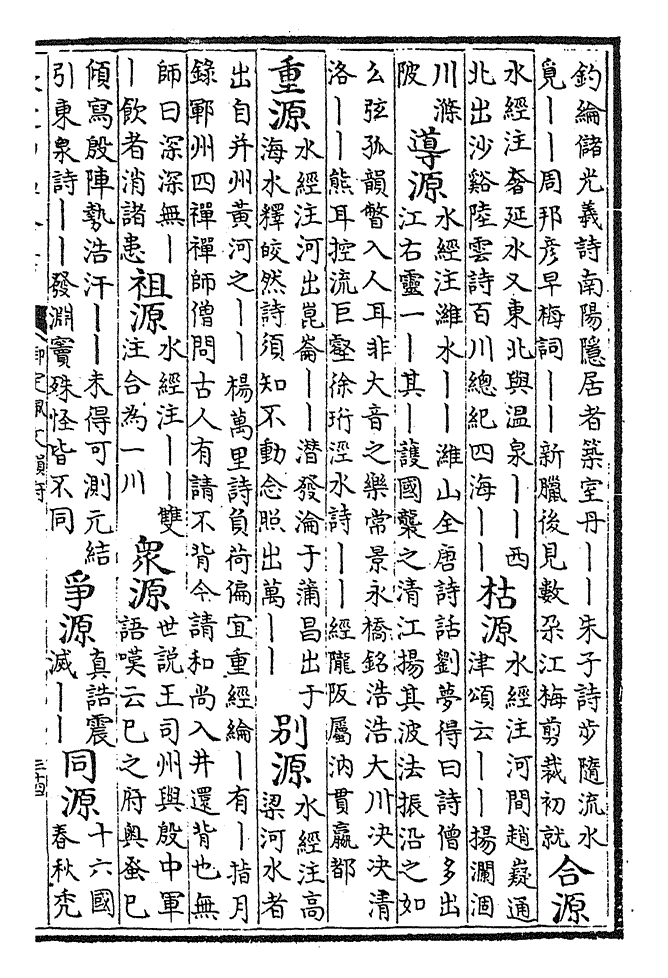 釣綸儲光義詩南陽隱居者築室丹丨丨朱子詩步隨流水
覓丨丨周邦彥早梅詞丨丨新臘後見數朵江梅剪裁初就
合源
水經注奢延水又東北與溫泉丨丨西
北出沙谿陸雲詩百川總紀四海丨丨
枯源
水經注河間趙嶷通
津頌云丨丨揚瀾涸
川滌
陂
導源
水經注濰水丨丨濰山全唐詩話劉夢得曰詩僧多出
江右靈一丨其丨護國襲之清江揚其波法振沿之如
么弦孤韻瞥入人耳非大音之樂常景永橋銘浩浩大川決決清
洛丨丨熊耳控流巨壑徐珩涇水詩丨丨經隴阪屬汭貫嬴都
重源
水經注河出崑崙丨丨潛發淪于蒲昌出于
海水釋皎然詩須知不動念照出萬丨丨
別源
水經注高
梁河水者
出自并州黃河之丨丨楊萬里詩負荷偏宜重經綸丨有丨指月
錄鄆州四禪禪師僧問古人有請不背今請和尚入井還背也無
師曰深深無丨
丨飲者消諸患
祖源
水經注丨丨雙
注合為一川
衆源
世說王司州與殷中軍
語嘆云已之府奧蚤已
傾寫殷陣勢浩汗丨丨未得可測元結
引東泉詩丨丨發淵竇殊怪皆不同
爭源
真誥震
滅丨丨
同源
十六國
春秋禿